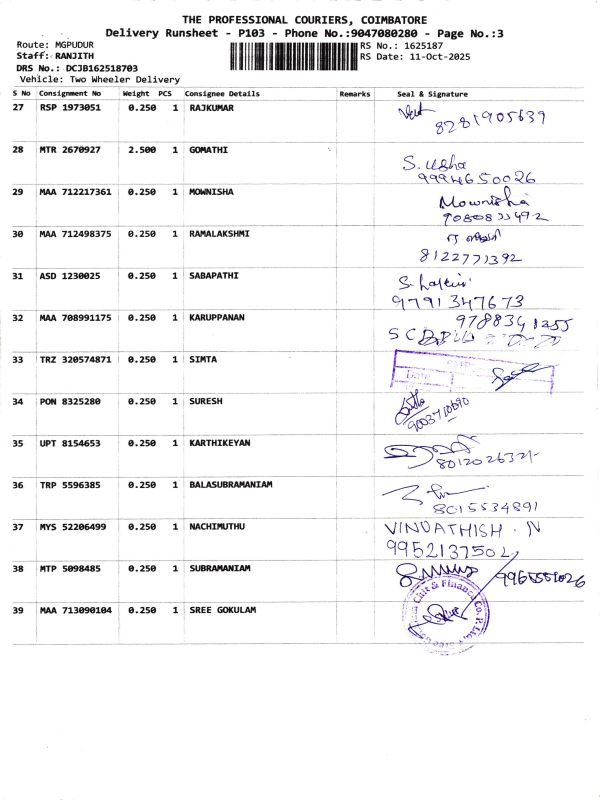 THE PROFESSIONAL COURIERS, COIMBATORE
Delivery Runsheet - P103 - Phone No.:9047080280 - Page No.:3
Route: MGPUDUR RS No.: 1625187
Staff: RANJITH RS Date: 11-Oct-2025
DRS No.: DCJB162518703
Vehicle: Two Wheeler Delivery
S No Consignment No Weight PCS Consignee Details Remarks Seal & Signature
27 RSP 1973051 0.250 1 RAJKUMAR
8281905639
28 MTR 2670927 2.500 1 GOMATHI
S. usha
9994650026
29 MAA 712217361 0.250 1 MOWNISHA
Mownisha
9080833492
30 MAA 712498375 0.250 1 RAMALAKSHMI
8122771392
31 ASD 1230025 0.250 1 SABAPATHI
9791347673
32 MAA 708991175 0.250 1 KARUPPANAN
9788341255
33 TRZ 320574871 0.250 1 SIMTA
Date
34 PON 8325280 0.250 1 SURESH
9003710690
35 UPT 8154653 0.250 1 KARTHIKEYAN
36 TRP 5596385 0.250 1 BALASUBRAMANIAM
8015534891
37 MYS 52206499 0.250 1 NACHIMUTHU
VINDATHISH . N
9952137502
38 MTP 5098485 0.250 1 SUBRAMANIAM
39 MAA 713090104 0.250 1 SREE GOKULAM
Chit & Finance Co. P. Ltd.